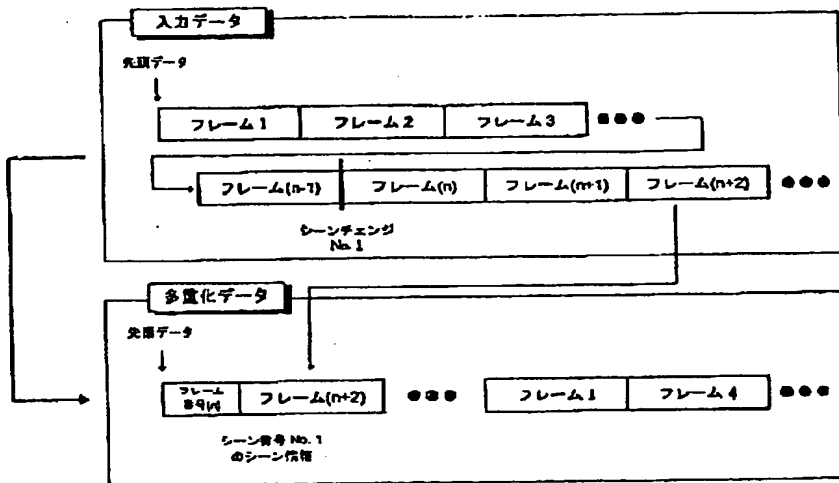 入力データ
先頭データ
フレーム1 フレーム2 フレーム3 ●●●
フレーム(n-1) フレーム(n) フレーム(n+1) フレーム(n+2) ●●●
シーンチェンジ
No. 1
多重化データ
先頭データ
フレーム
番号(n) フレーム(n+2) ●●● フレーム1 フレーム4 ●●●
シーン番号 No. 1
のシーン情報